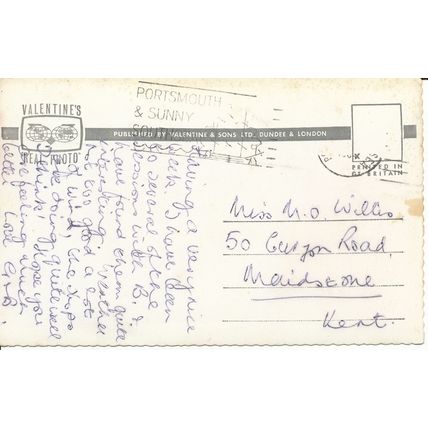 VALENTINE'S
"REAL PHOTO"
PORTSMOUTH
& SUNNY
PUBLISHED BY VALENTINE & SONS LTD., DUNDEE & LONDON
PRINTED IN
GT. BRITAIN
Having a very nice
week. I have been
to several of the
sessions with B. &
have found them quite
interesting. Weather
not too good a lot
of wind, the
are doing quite well
I think. Hope you
are feeling much
better Love
Miss M. O. Willis
50 Curzon Road,
Maidstone
Kent.